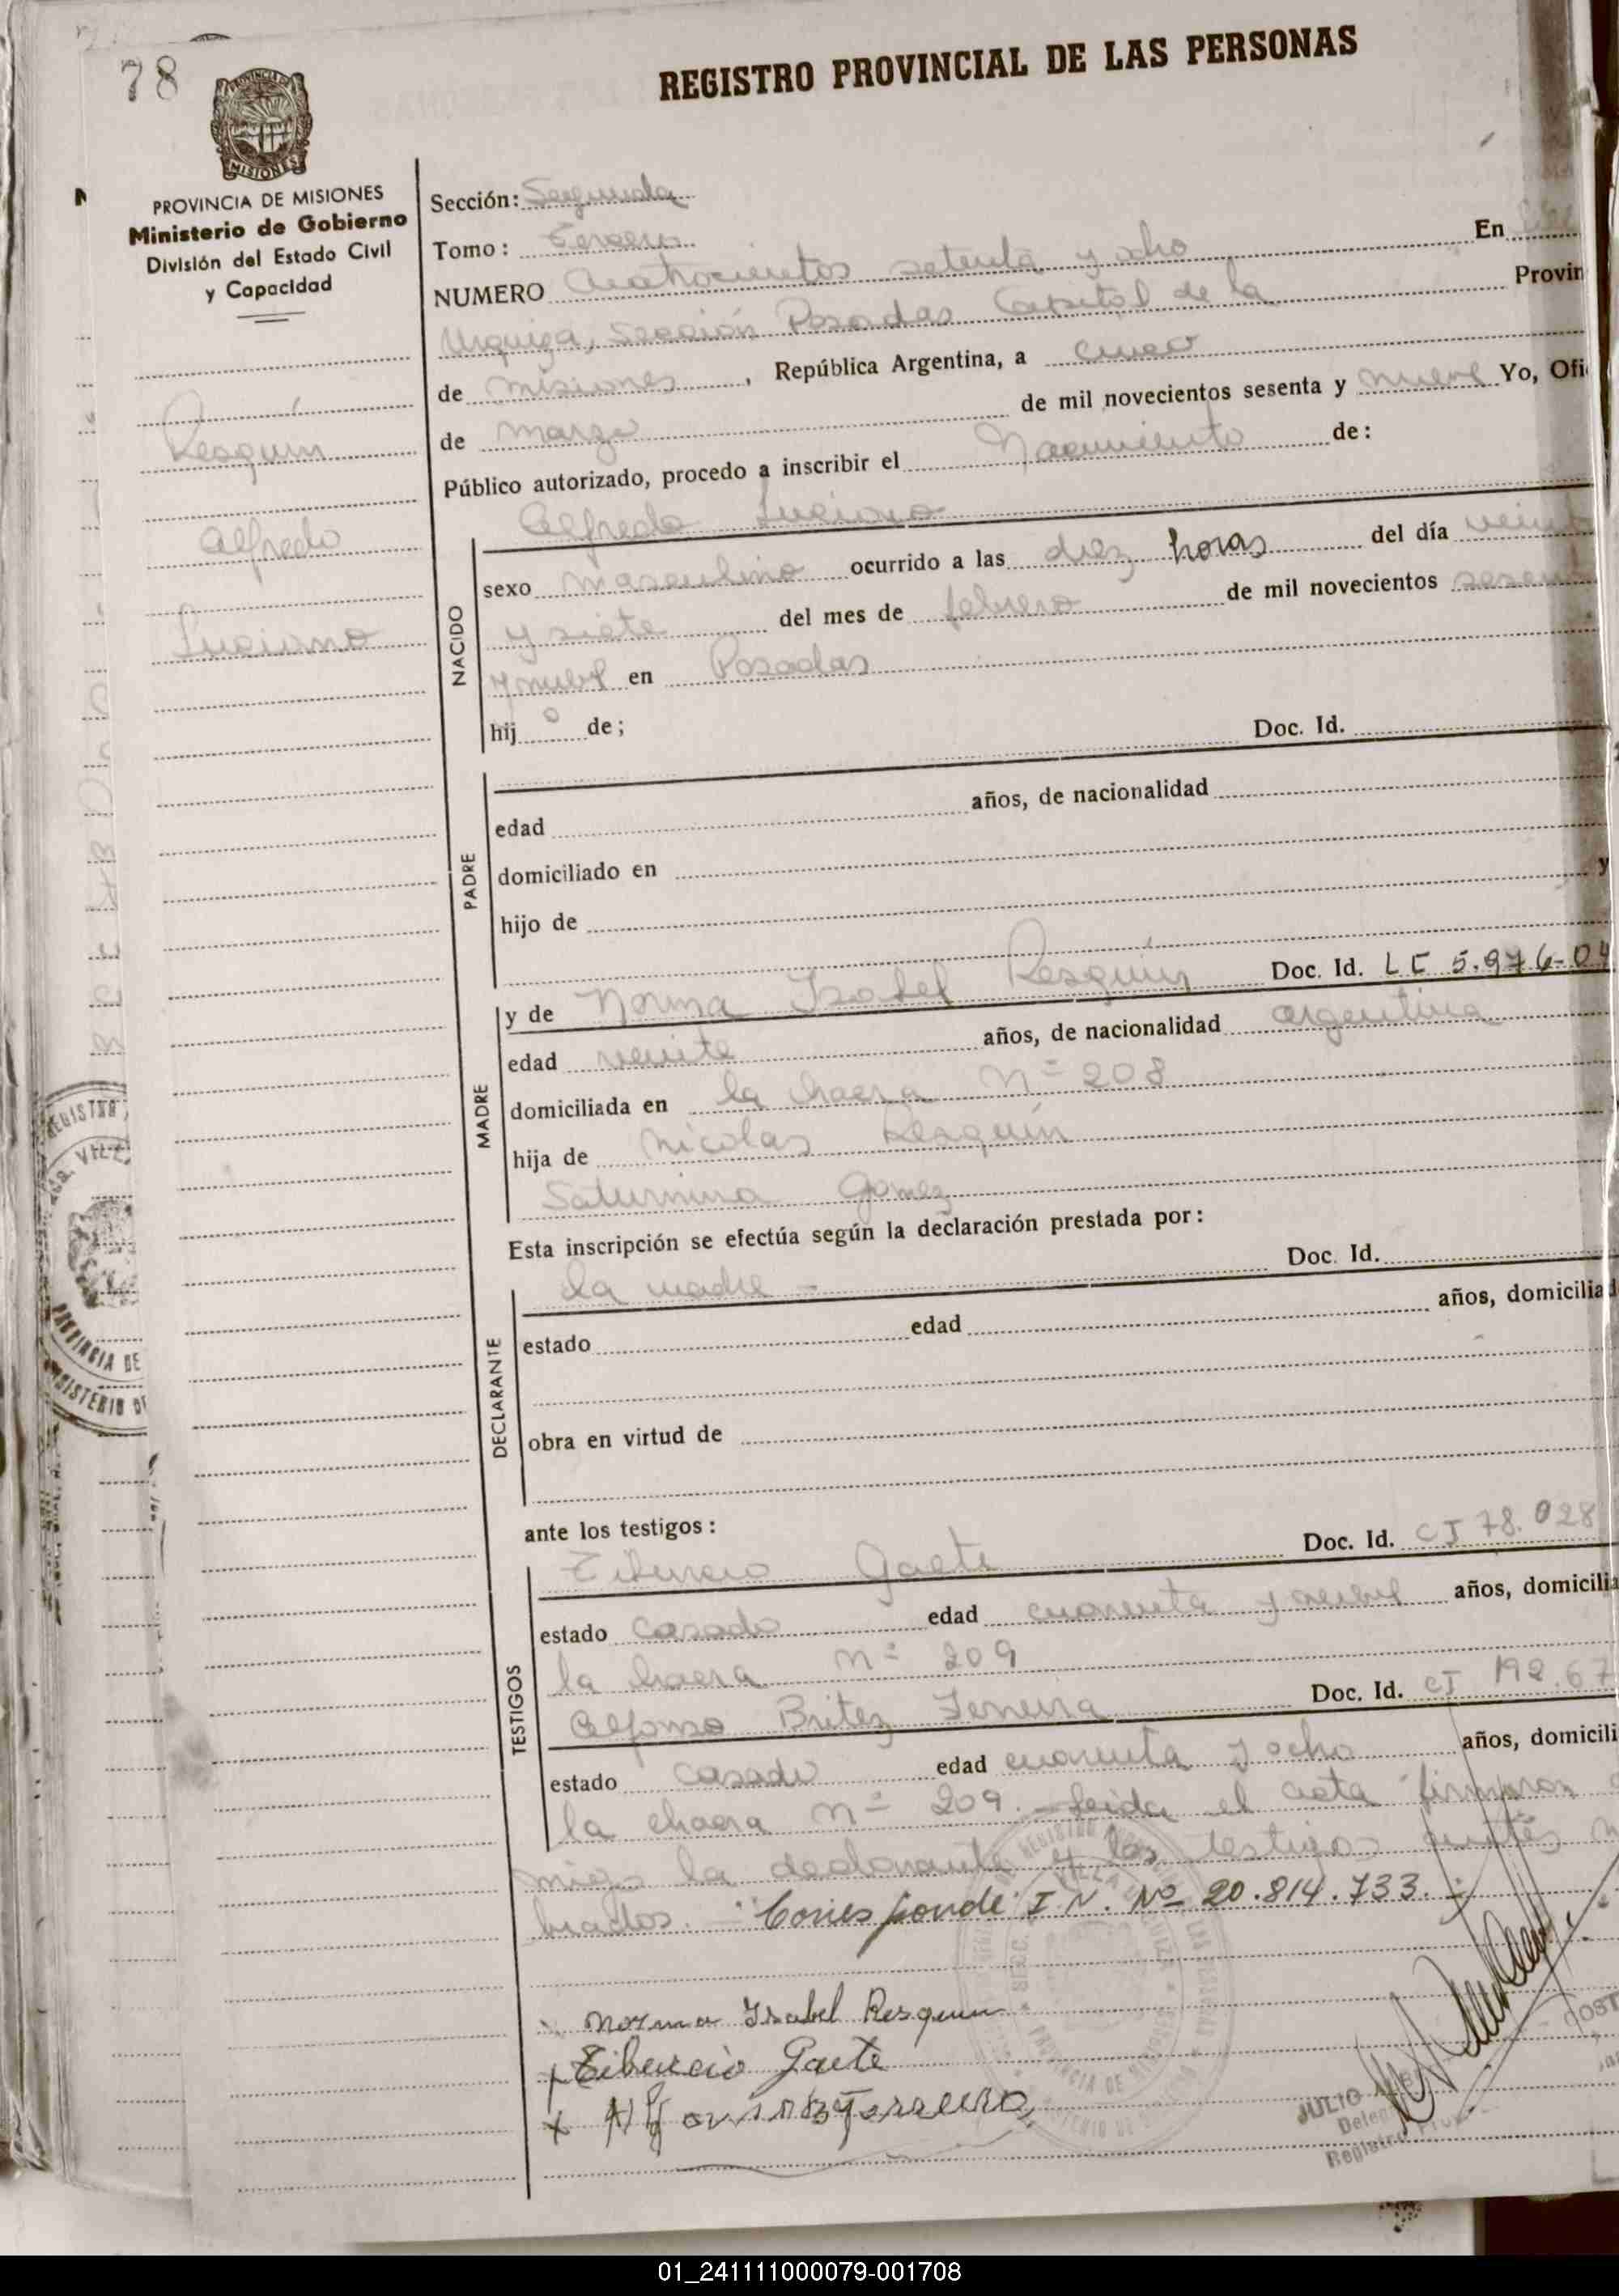 78
REGISTRO PROVINCIAL DE LAS PERSONAS
MISIONES
PROVINCIA DE MISIONES
Ministerio de Gobierno
División del Estado Civil
y Capacidad
Resquín
Alfredo
Luciano
Sección: Segunda
Tomo: Tercero
NUMERO Cuatrocientos setenta y ocho En
Urquiza, Sección Posadas Capital de la Provin
de Misiones, República Argentina, a cinco
de marzo de mil novecientos sesenta y nueve Yo, Ofi
Público autorizado, procedo a inscribir el Nacimiento de:
Alfredo Luciano
NACIDO
sexo masculino ocurrido a las diez horas del día veinti
y siete del mes de febrero de mil novecientos sesent
y nueve en Posadas
hijo de;
PADRE
Doc. Id.
edad años, de nacionalidad
domiciliado en
hijo de y
MADRE
y de Norma Isabel Resquín Doc. Id. LC 5.976-04
edad veinte años, de nacionalidad argentina
domiciliada en la chacra Nº 208
hija de Nicolas Resquín
Saturnina Gomez
Esta inscripción se efectúa según la declaración prestada por:
DECLARANTE
la madre - Doc. Id.
estado edad años, domiciliad
obra en virtud de
ante los testigos:
TESTIGOS
Tiburcio Gaete Doc. Id. CI 78.028
estado casado edad cuarenta y nueve años, domicilia
la chacra nº 209
Alfonso Britez Ferreira Doc. Id. CI 192.67
estado casado edad cuarenta y ocho años, domicili
la chacra nº 209. - Leida el acta firmaron
migo la declarante y los testigos
brados. - Corresponde I.N. Nº 20.814.733.-
Norma Isabel Resquin
x Tiburcio Gaete
x
JULIO
Deleg
Registro
COST
REGISTRO
VILL
PROVINCIA DE
MINISTERIO DE
01_241111000079-001708